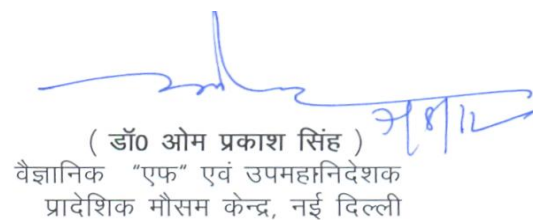 7/8/12
( डॉ0 ओम प्रकाश सिंह )
वैज्ञानिक "एफ" एवं उपमहानिदेशक
प्रादेशिक मौसम केन्द्र, नई दिल्ली